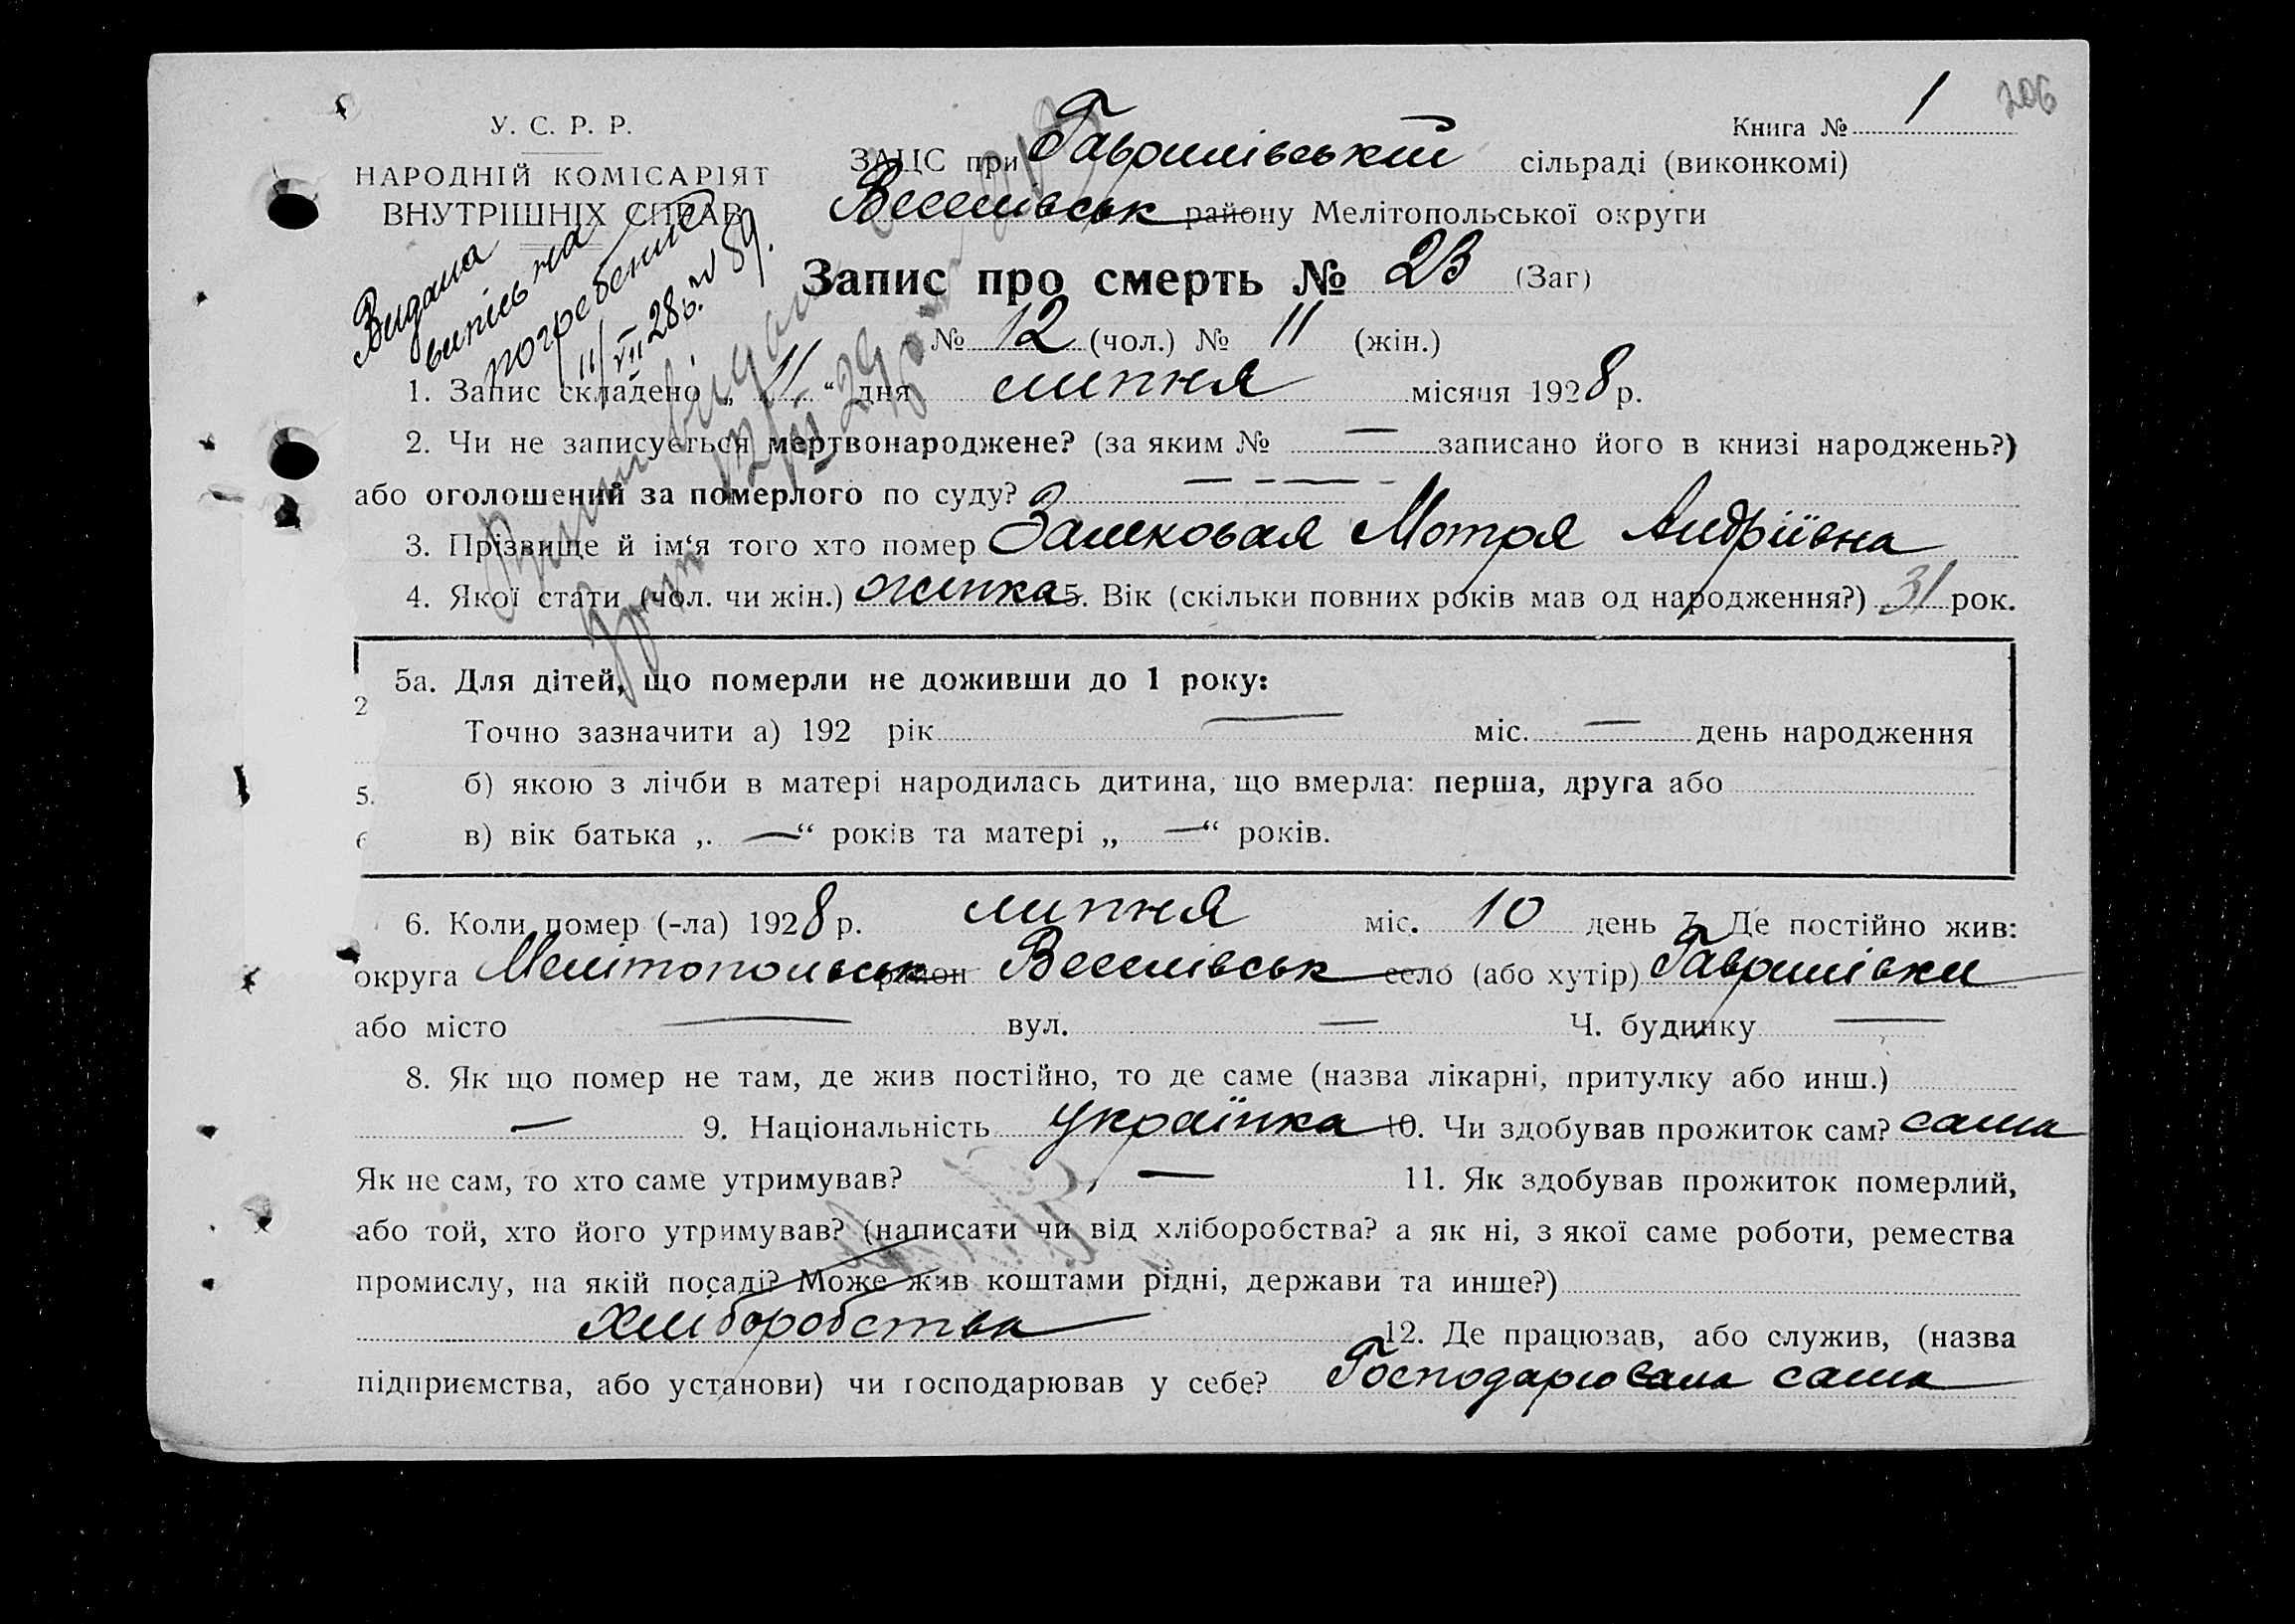 206
У. С. Р. Р.
НАРОДНІЙ КОМІСАРІЯТ
ВНУТРІШНІХ СПРАВ
Книга № 1
ЗАЦС при Гаврилівській сільраді (виконкомі)
Веселівськ району Мелітопольської округи
Видана
випісь на
погребение
11/VII 28 р. № 59.
Запис про смерть № 23 (Заг)
№ 12 (чол.) № 11 (жін.)
1. Запис складено „ 11 “ дня липня місяця 1928 р.
2. Чи не записується мертвонароджене? (за яким № — записано його в книзі народжень?)
або оголошений за померлого по суду? — - — -
3. Прізвище й ім‘я того хто помер Мотря Андріївна
4. Якої стати (чол. чи жін.) жінка 5. Вік (скільки повних років мав од народження?) 31 рок.
5а. Для дітей, що померли не доживши до 1 року:
Точно зазначити а) 192 рік — міс. — день народження
б) якою з лічби в матері народилась дитина, що вмерла: перша, друга або
в) вік батька „ — “ років та матері „ — “ років.
6. Коли помер (-ла) 1928 р. липня міс. 10 день 7. Де постійно жив:
округа Мелітопольськ район Веселівськ село (або хутір) Гаврилівки
або місто — вул. — Ч. будинку —
8. Як що помер не там, де жив постійно, то де саме (назва лікарні, притулку або инш.)
— 9. Національність українка 10. Чи здобував прожиток сам? сама
Як не сам, то хто саме утримував? — 11. Як здобував прожиток померлий,
або той, хто його утримував? (написати чи від хліборобства? а як ні, з якої саме роботи, ремества
промислу, на якій посаді? Може жив коштами рідні, держави та инше?)
Хліборобства 12. Де працював, або служив, (назва
підприємства, або установи) чи господарював у себе? Господарювала сама